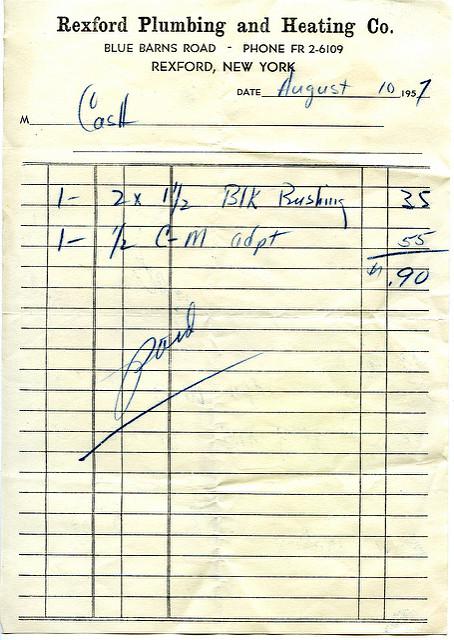 Rexford Plumbing and Heating Co.
BLUE BARNS ROAD - PHONE FR 2-6109
REXFORD, NEW YORK
DATE August 10 1957
M Cash
1- 2 x 1 1/2 Blk Bushing 35
1- 1/2 C-M adpt 55
$ .90
paid